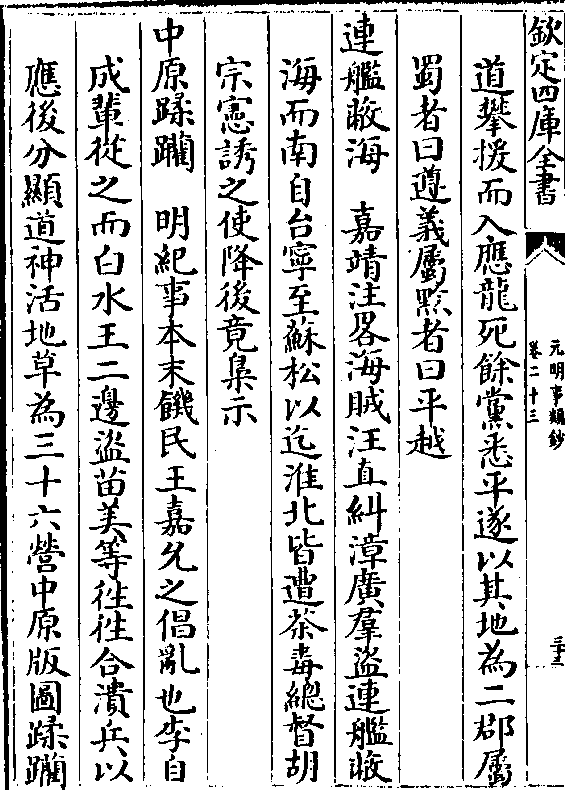 欽定四庫全書
元明事類鈔
卷二十三
三十三
道攀援而入應龍死餘黨悉平遂以其地為二郡屬
蜀者曰遵義屬黔者曰平越
連艦蔽海　嘉靖注畧海賊汪直糾漳廣羣盜連艦蔽
海而南自台寧至蘇松以迄淮北皆遭荼毒總督胡
宗憲誘之使降後竟梟示
中原蹂躪　明紀事本末饑民王嘉允之倡亂也李自
成輩從之而白水王二邊盜苗美等徃徃合潰兵以
應後分顯道神活地草為三十六營中原版圖蹂躪